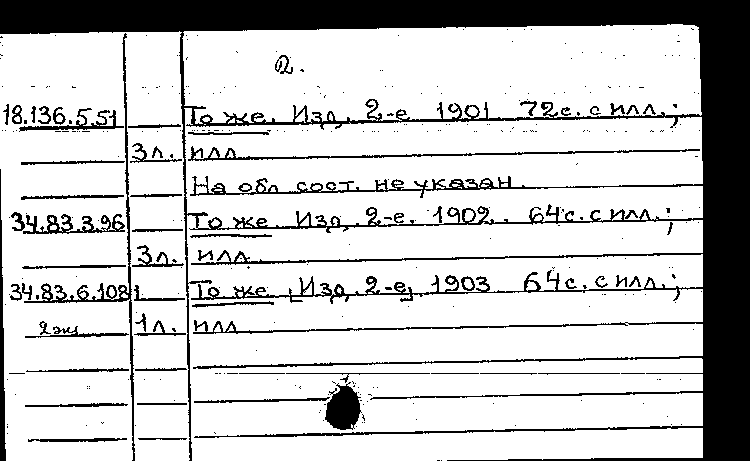 2.
18.136.5.51 То же. Изд. 2-е 1901 72с. с илл.;
3л. илл
На обл сост. не указан.
34.83.3.96 То же Изд. 2-е. 1902. 64с. с илл.;
3л. илл.
34.83.6.1081 То же [Изд. 2-е] 1903 64с. с илл.;
2 экз 1л. илл